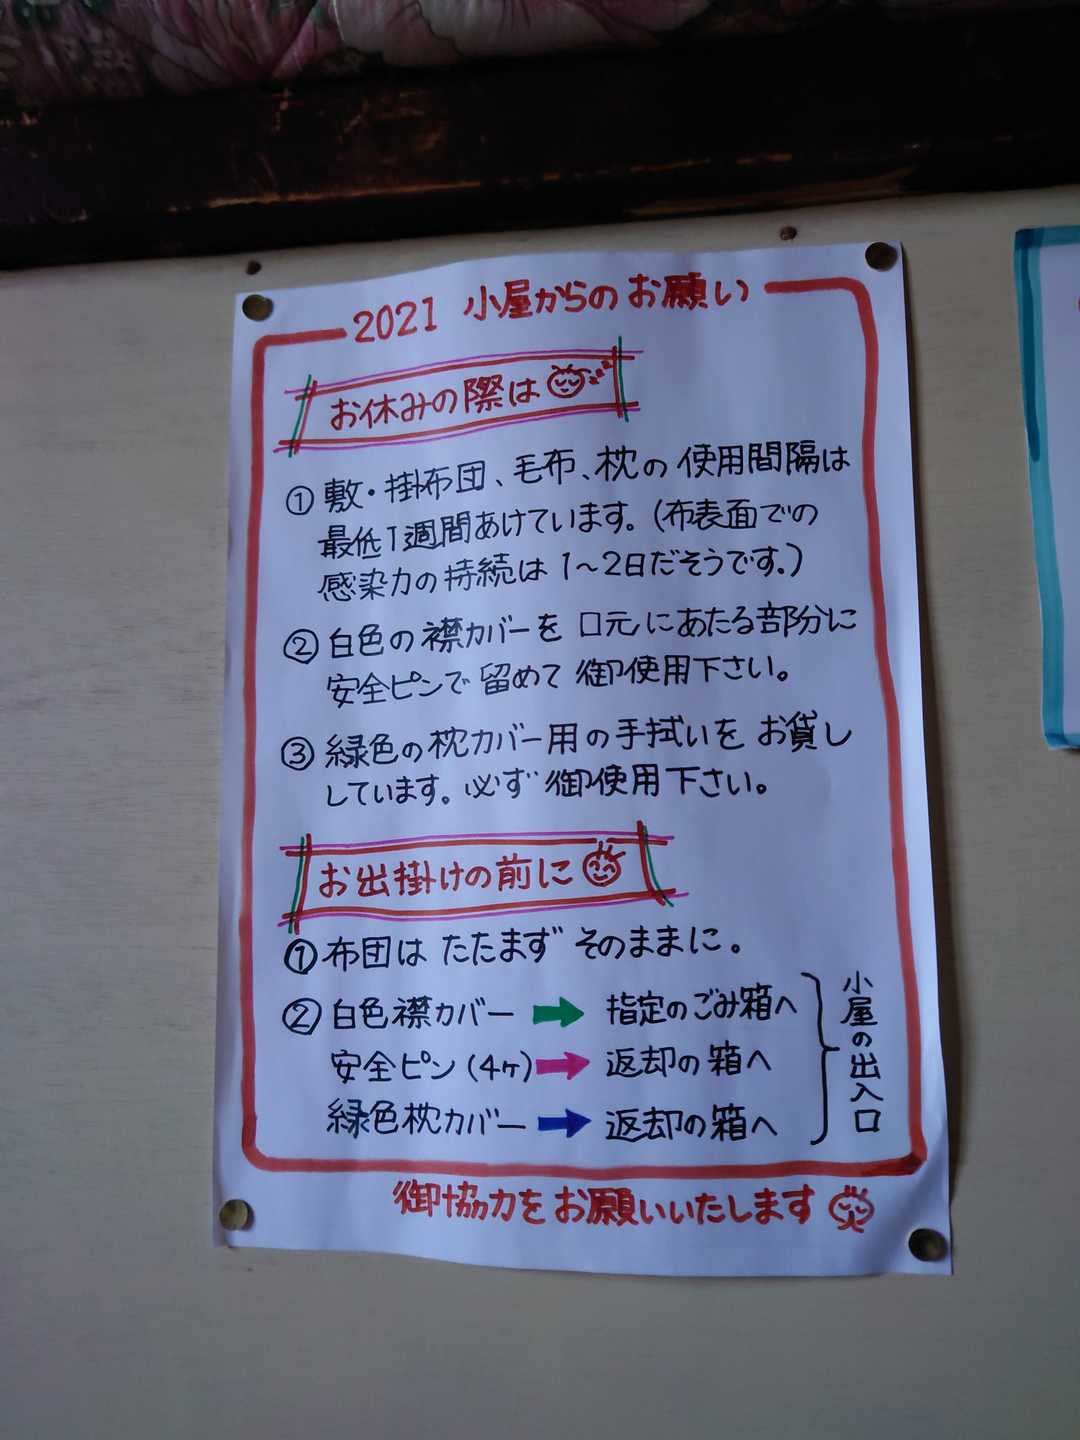 2021 小屋からのお願い
お休みの際は
① 敷・掛布団、毛布、枕の使用間隔は
最低1週間あけています。(布表面での
感染力の持続は1〜2日だそうです。)
② 白色の襟カバーを口元にあたる部分に
安全ピンで留めて御使用下さい。
③ 緑色の枕カバー用の手拭いをお貸し
しています。必ず御使用下さい。
お出掛けの前に
① 布団はたたまずそのままに。
② 白色襟カバー → 指定のごみ箱へ
安全ピン(4ヶ) → 返却の箱へ
緑色枕カバー → 返却の箱へ
小屋の出入口
御協力をお願いいたします